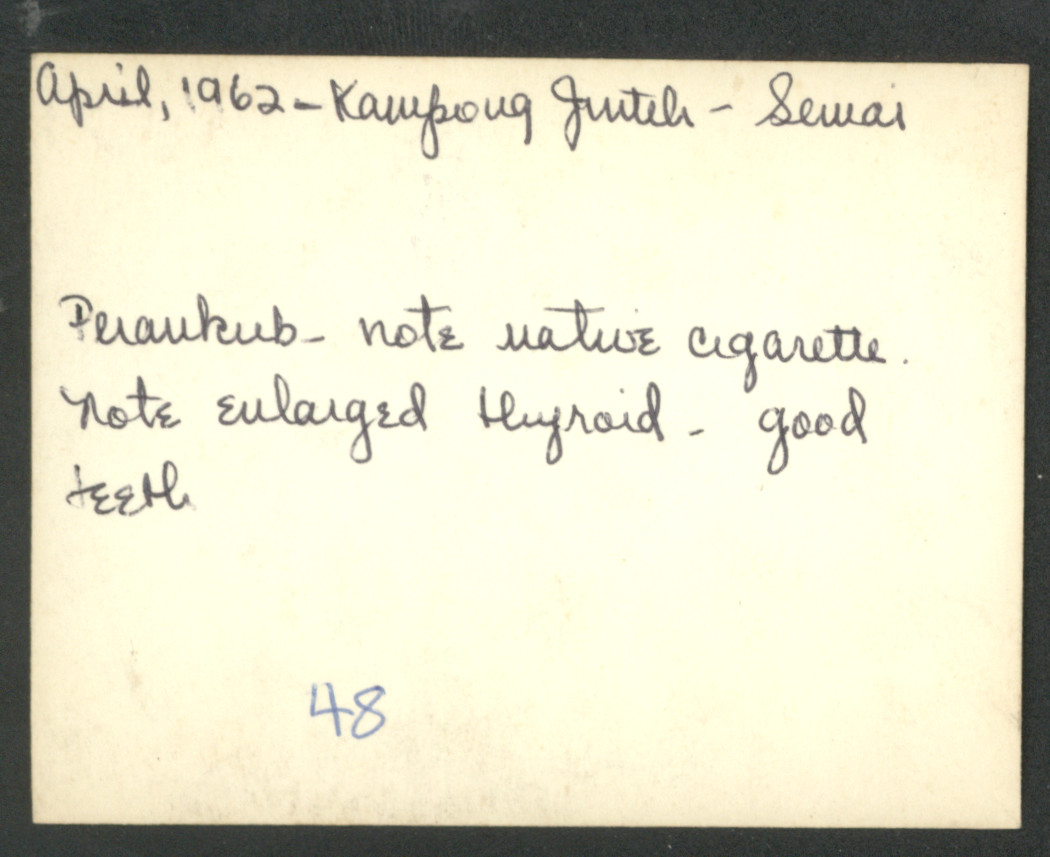 April, 1962 - Kampong Jinteh - Semai
Perankub - note native cigarette.
Note enlarged thyroid - good
teeth
48